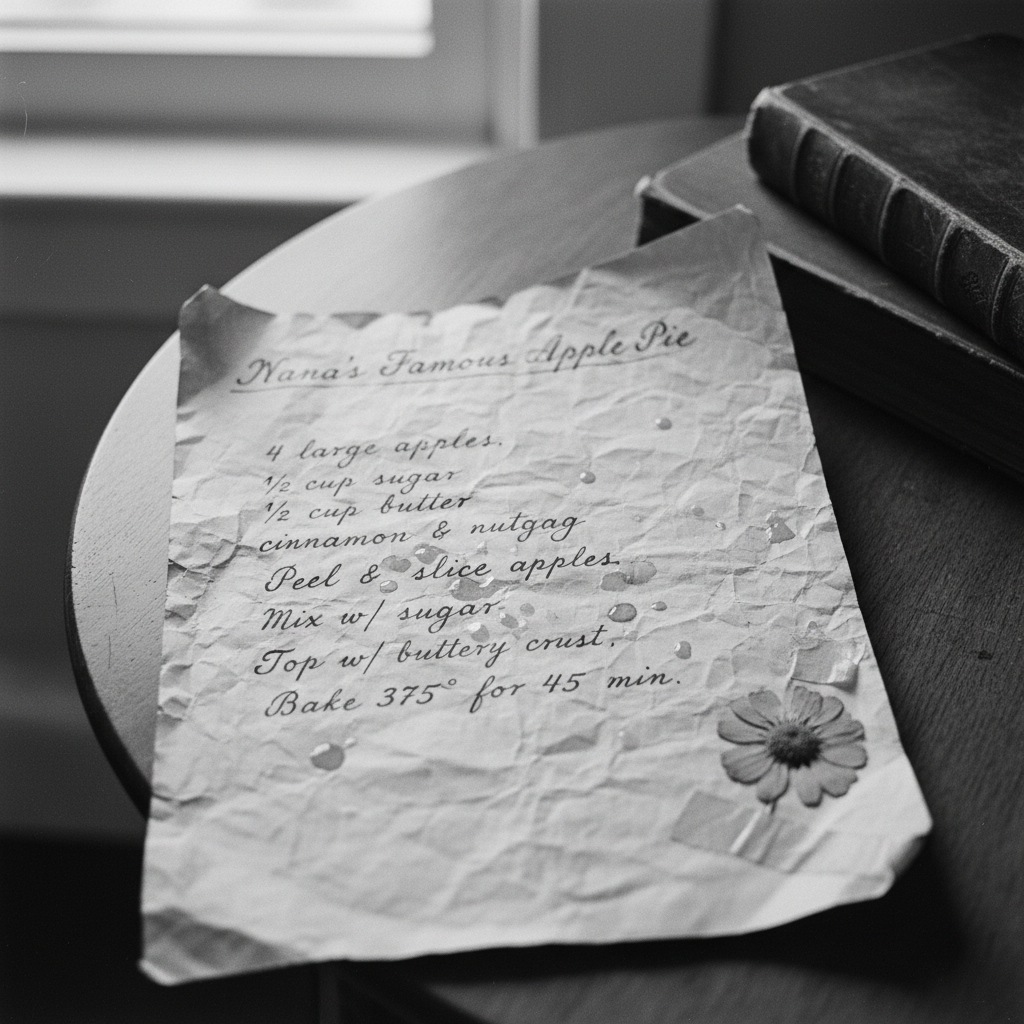 Nana's Famous Apple Pie
4 large apples.
½ cup sugar
½ cup butter
cinnamon & nutgag
Peel & slice apples.
Mix w/ sugar
Top w/ buttery crust.
Bake 375° for 45 min.